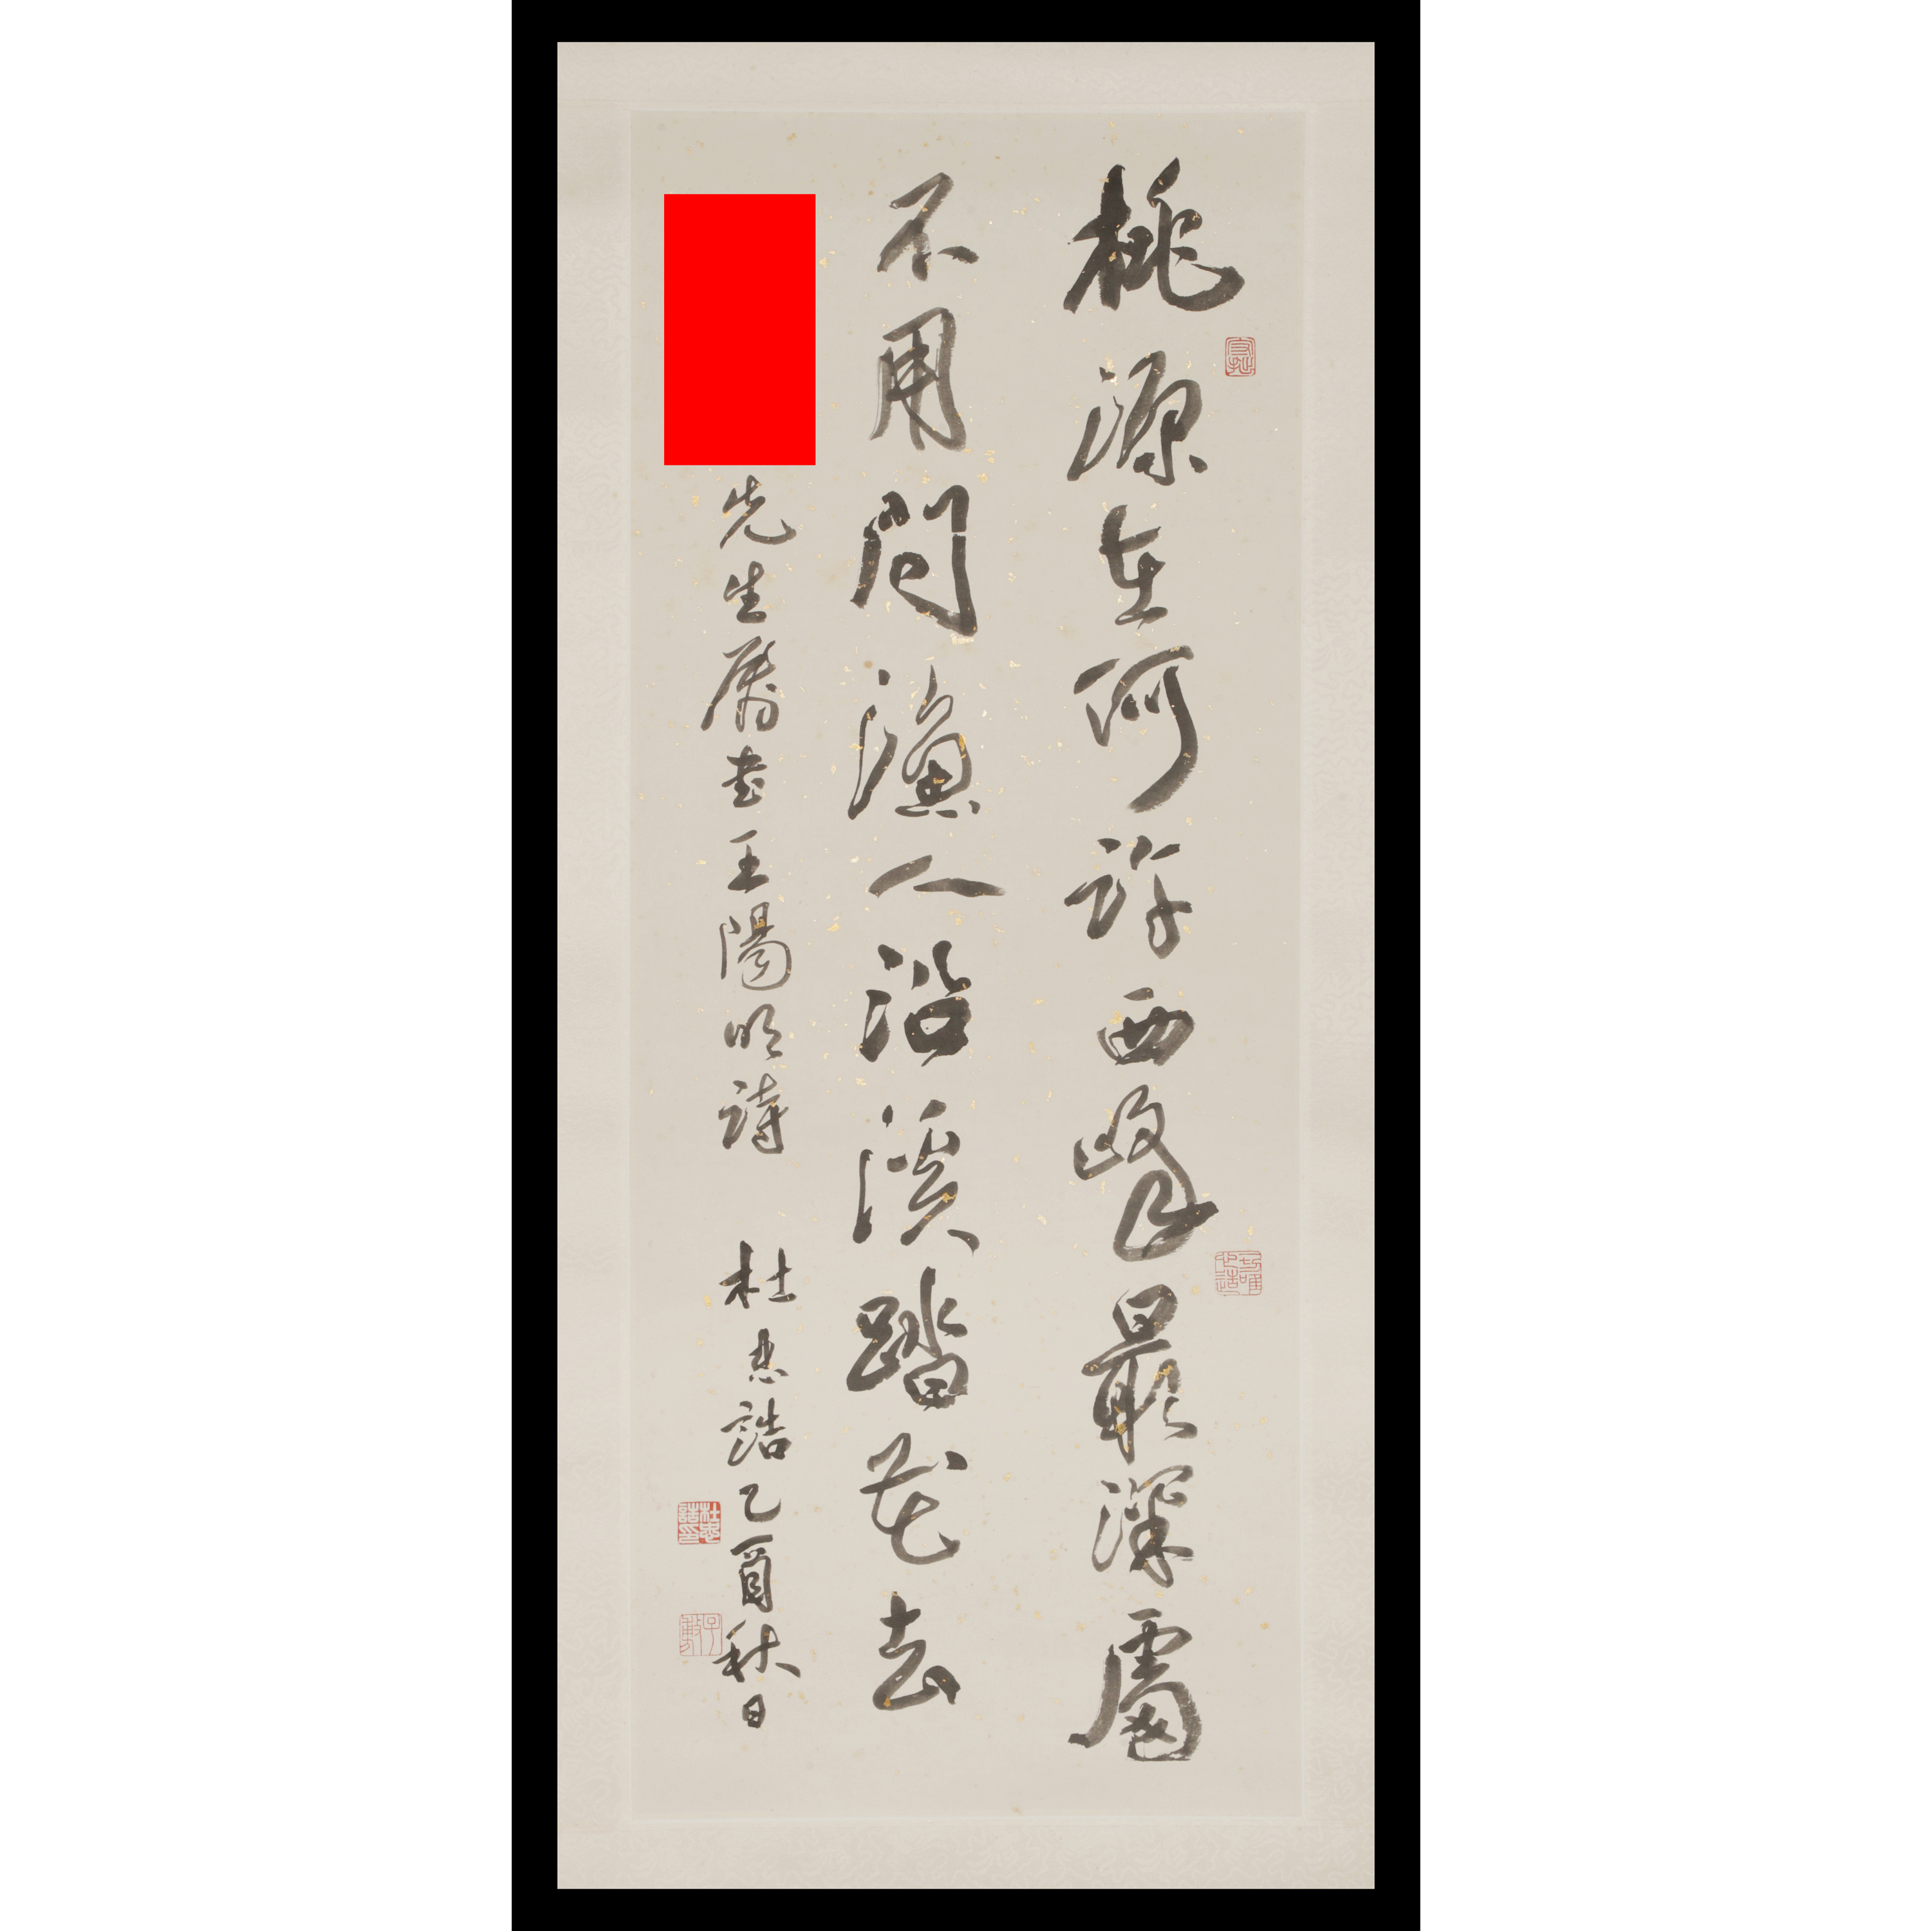 桃源在何許西峰最深處
不用問漁人沿溪踏花去
先生屬書王陽明詩 杜忠誥乙酉秋日
杜忠誥印